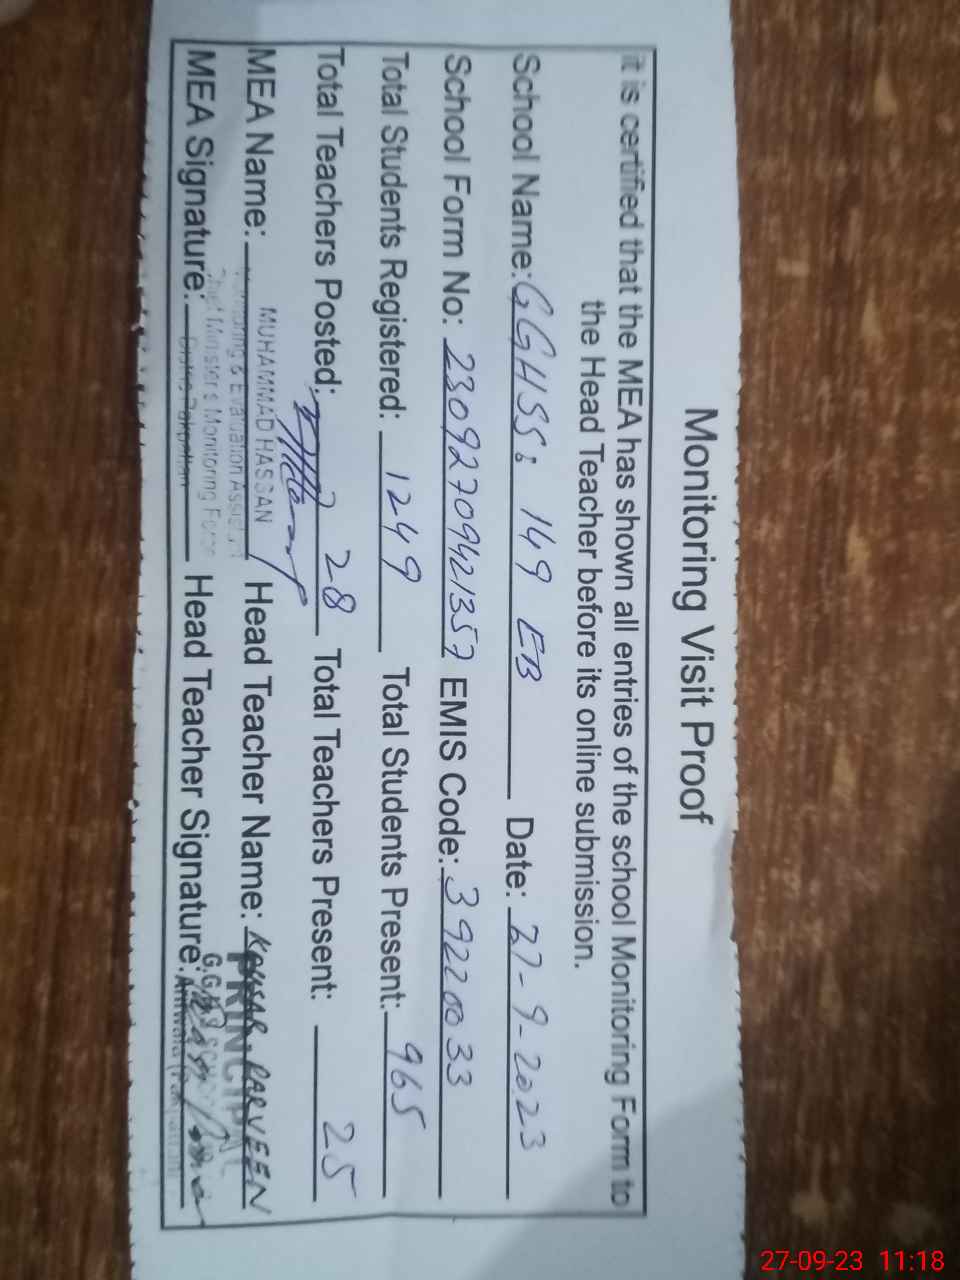 Monitoring Visit Proof
it is certified that the MEA has shown all entries of the school Monitoring Form to
the Head Teacher before its online submission.
School Name: GGHSS: 149 EB Date: 27-9-2023
School Form No: 23092709421357 EMIS Code: 39220033
Total Students Registered: 1249 Total Students Present: 965
Total Teachers Posted: 28 Total Teachers Present: 25
MEA Name: MUHAMMAD HASSAN Head Teacher Name: KAUSAR PARVEEN
Monitoring & Evaluation Assistant
PRINCIPAL
Chief Minister's Monitoring Force
MEA Signature: Head Teacher Signature:
27-09-23 11:18